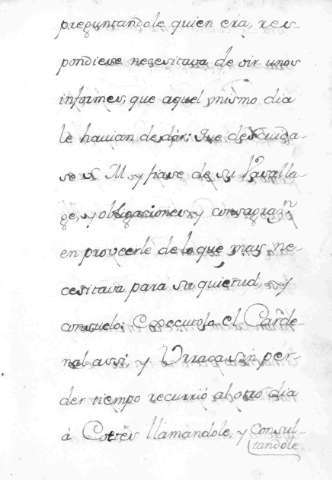 preguntandole quien era, res-
pondiese necesitava de oir unos
informes, que aquel mismo dia
le havian de dar: Que descuida-
se S. M. y fiase de su
ge, y obligaciones, y consagrazn
en proveerle de lo que mas ne-
cesitava para su quietud, y
consuelo. Executolo el Carde-
nal assi, y Urraca sin per-
der tiempo recurrió al otro dia
á Cortés llamandole, y Consul-
tandole